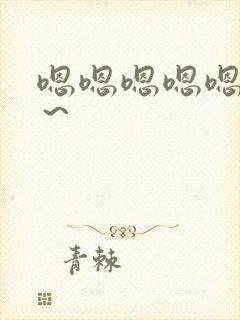 嗯嗯嗯嗯嗯
～
青棘